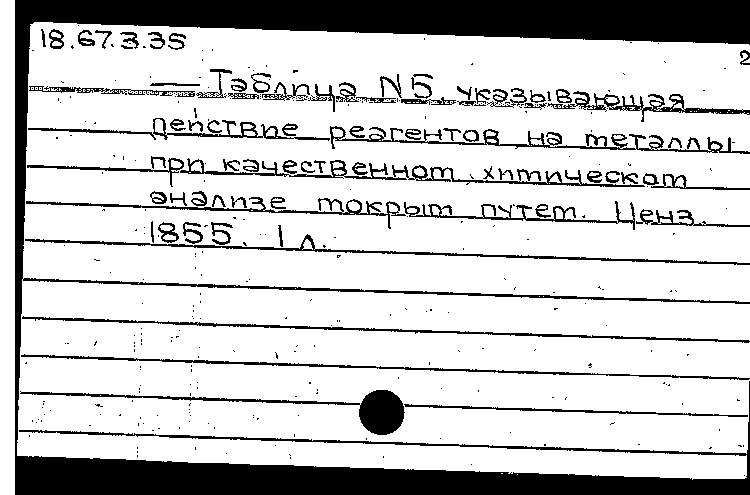 18.67.3.35
2
— Таблица N5, указывающая
действие реагентов на металлы
при качественном химическом
анализе мокрым путем. Ценз.
1855. 1 л.